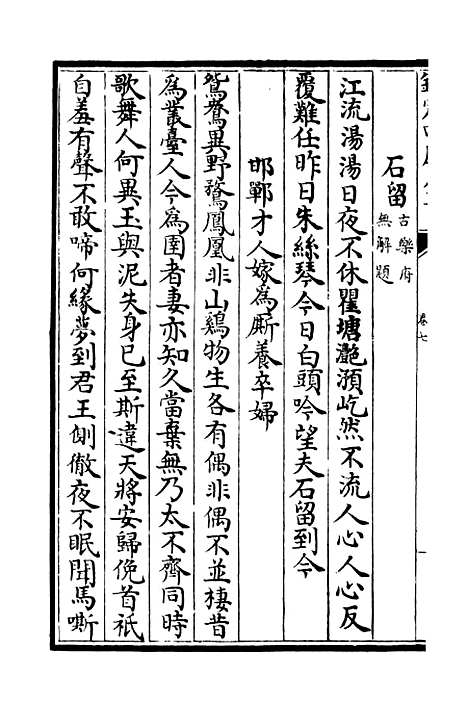 石留古樂府無解題
江流湯湯日夜不休瞿塘灔澦屹然不流人心人心反
覆難任昨日朱絲琴今日白頭吟望夫石留到今
邯鄲才人嫁為厮養卒婦
鴛鴦異野鶩鳳凰非山鷄物生各有偶非偶不並棲昔
為叢臺人今為圉者妻亦知久當棄無乃太不齊同時
歌舞人何異玉與泥失身已至斯違天將安歸俛首衹
自羞有聲不敢啼何緣夢到君王側徹夜不眠聞馬嘶
卷七